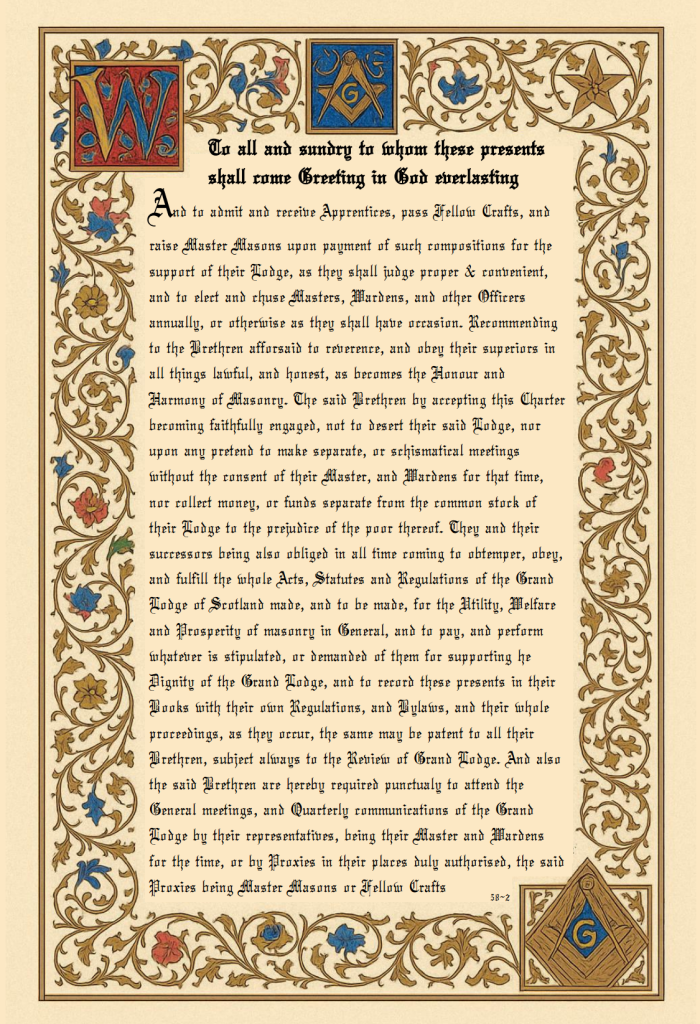 W
G
To all and sundry to whom these presents
shall come Greeting in God everlasting
And to admit and receive Apprentices, pass Fellow Crafts, and
raise Master Masons upon payment of such compositions for the
support of their Lodge, as they shall judge proper & convenient,
and to elect and chuse Masters, Wardens, and other Officers
annually, or otherwise as they shall have occasion. Recommending
to the Brethren afforsaid to reverence, and obey their superiors in
all things lawful, and honest, as becomes the Honour and
Harmony of Masonry. The said Brethren by accepting this Charter
becoming faithfully engaged, not to desert their said Lodge, nor
upon any pretend to make separate, or schismatical meetings
without the consent of their Master, and Wardens for that time,
nor collect money, or funds separate from the common stock of
their Lodge to the prejudice of the poor thereof. They and their
successors being also obliged in all time coming to obtemper, obey,
and fulfill the whole Acts, Statutes and Regulations of the Grand
Lodge of Scotland made, and to be made, for the Utility, Welfare
and Prosperity of masonry in General, and to pay, and perform
whatever is stipulated, or demanded of them for supporting he
Dignity of the Grand Lodge, and to record these presents in their
Books with their own Regulations, and Bylaws, and their whole
proceedings, as they occur, the same may be patent to all their
Brethren, subject always to the Review of Grand Lodge. And also
the said Brethren are hereby required punctualy to attend the
General meetings, and Quarterly communications of the Grand
Lodge by their representatives, being their Master and Wardens
for the time, or by Proxies in their places duly authorised, the said
Proxies being Master Masons or Fellow Crafts
58~2
G